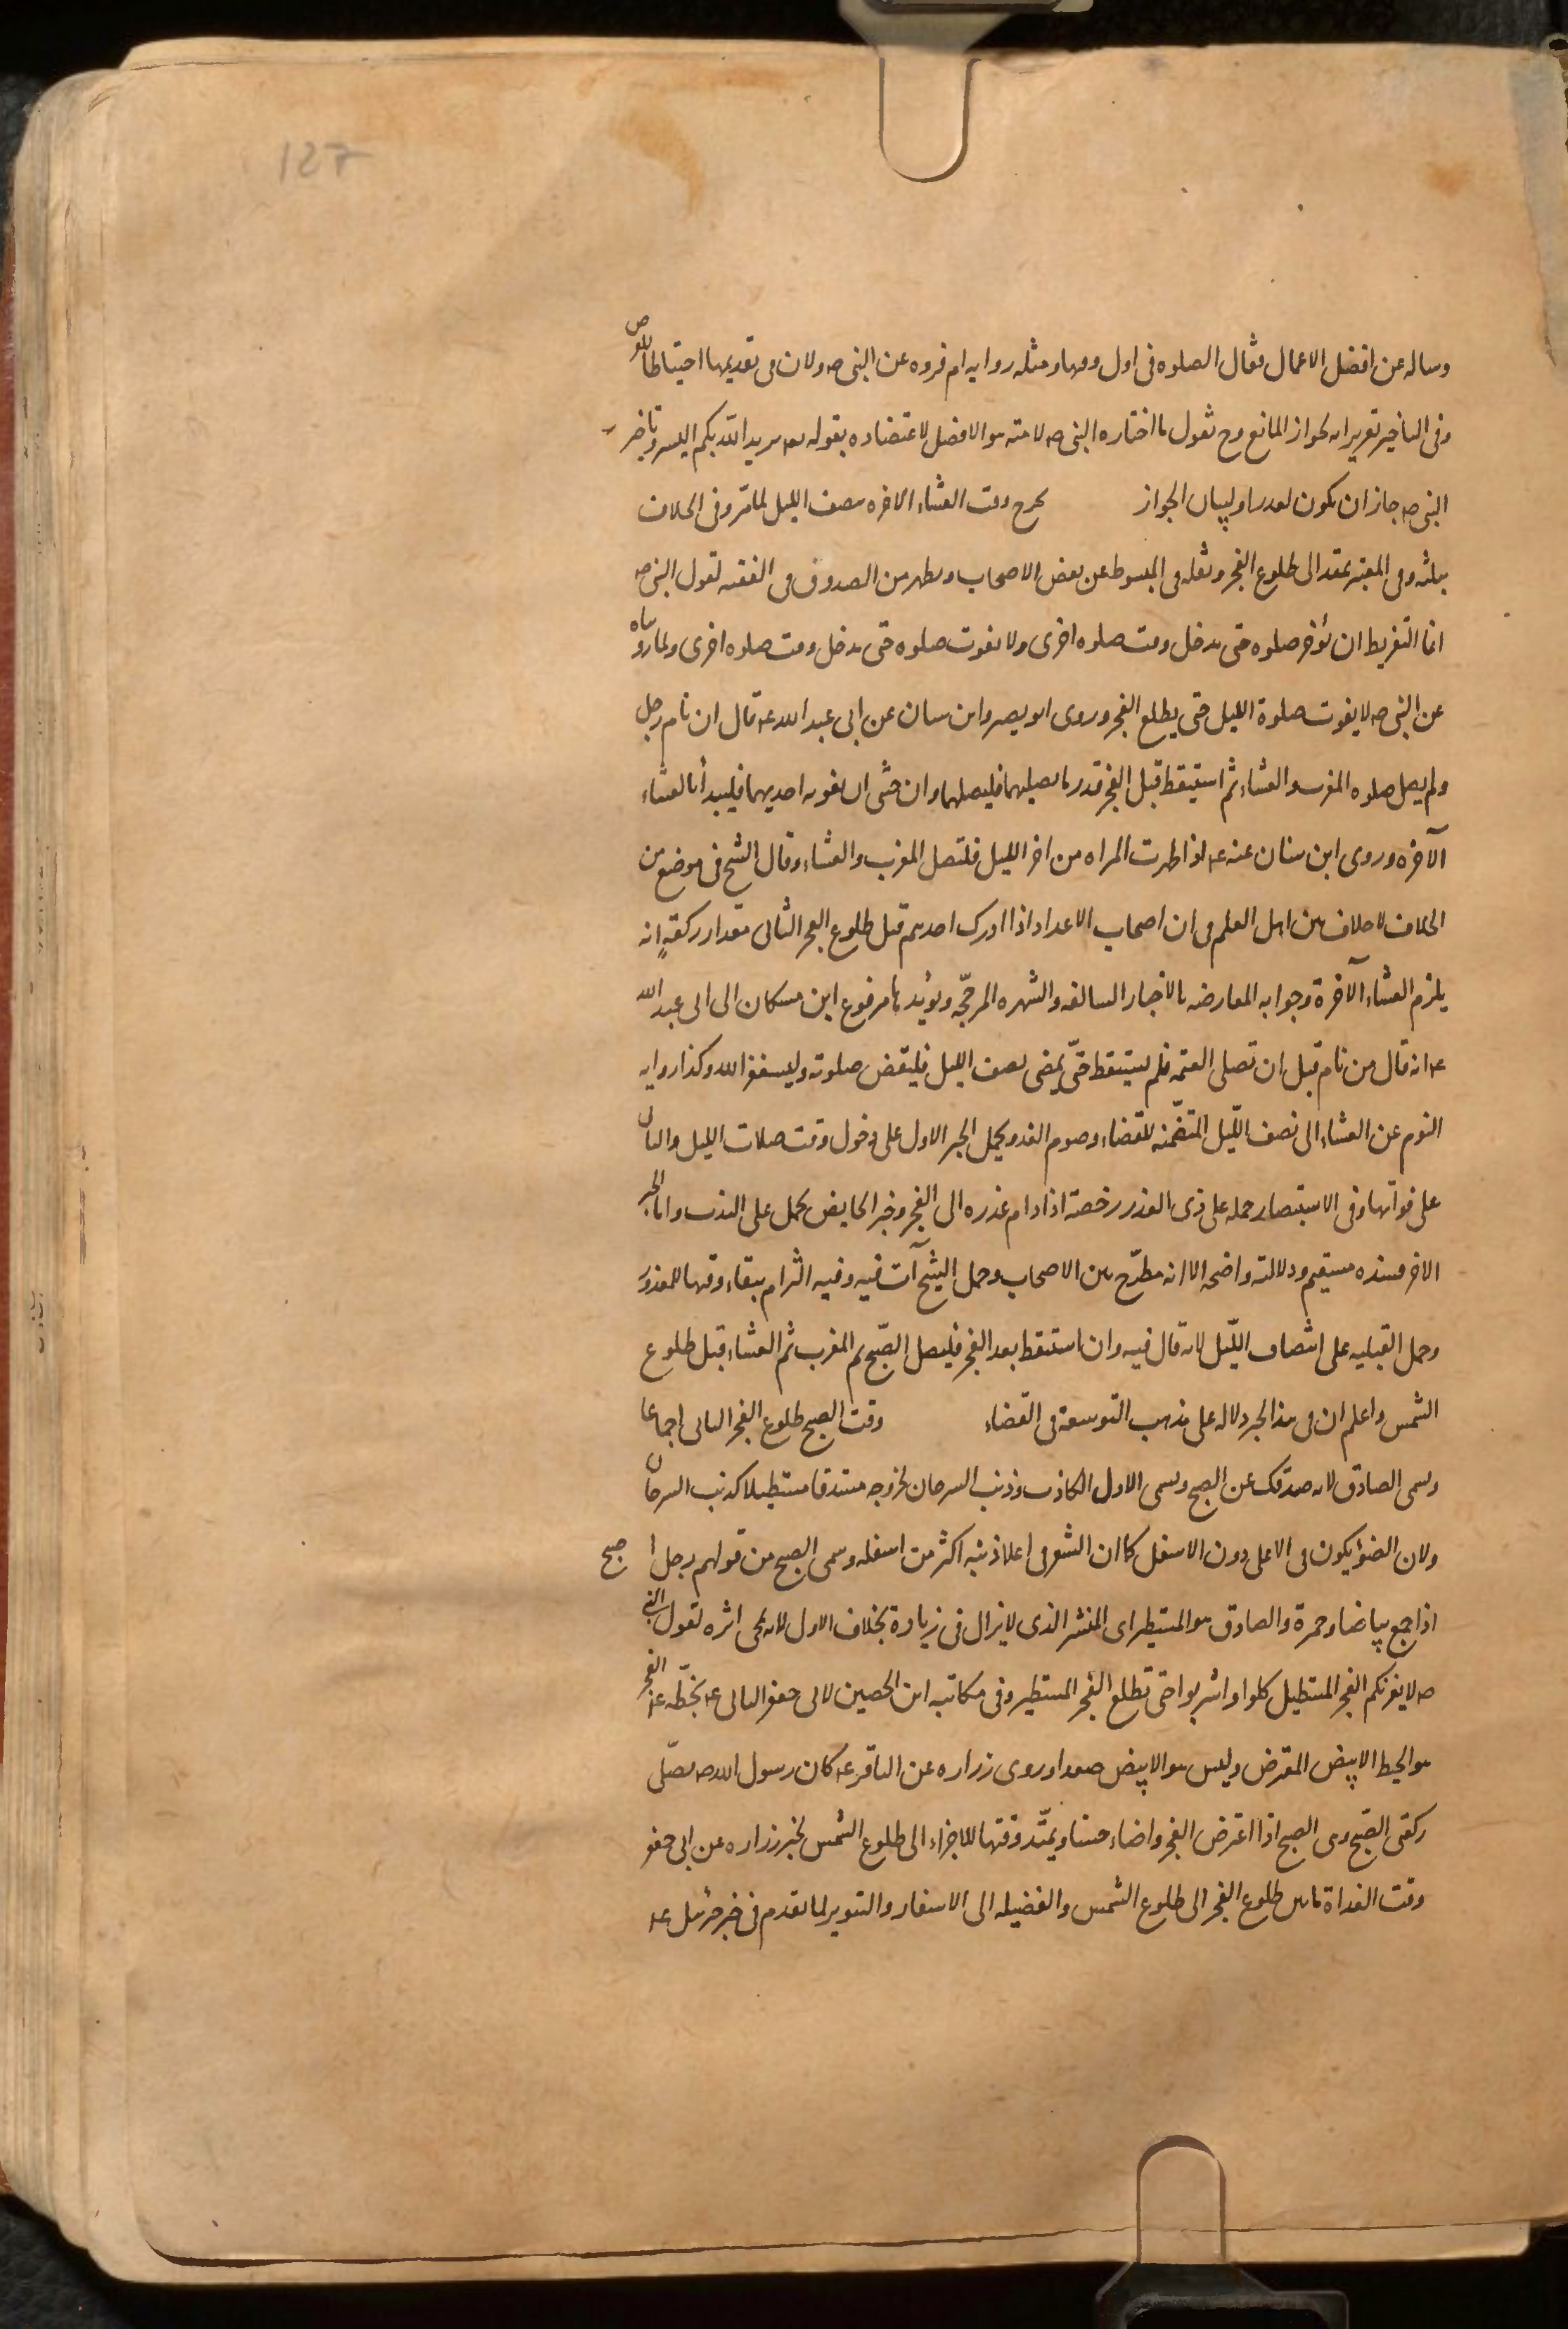 127
وساله عن افضل الاعمال فقال الصلوه فى اول وقتها ومثله روايه ام فروه عن النبى صه ولان فى تقديمها احتياطا للفرض
وفى التاخير تغرير ابه لجواز المانع وح نقول ما اختاره النبى صه لامته هو الافضل لاعتضاده بقوله تعه يريد الله بكم اليسر وتاخير
النبى صه جاز ان يكون لعذر او لبيان الجواز يخرج وقت العشاء الاخره بنصف الليل لما مرّ وفى الخلاف
بثلثه وفى المعتبر يمتد الى طلوع الفجر ونقله فى المبسوط عن بعض الاصحاب ويظهر من الصدوق فى الفقيه لقول النبى صه
انما التفريط ان تؤخر صلوه حتى يدخل وقت صلوه اخرى ولا يفوت صلوه حتى يدخل وقت صلوه اخرى ولما رويناه
عن النبى صه لا يفوت صلوة الليل حتى يطلع الفجر وروى ابو بصير وابن سنان عن ابى عبد الله عه قال ان نام رجل
ولم يصل صلوه المغرب والعشاء ثم استيقظ قبل الفجر قدر ما يصليهما فليصلهما وان خشى ان يفوته احديهما فليبدأ بالعشاء
الآخره وروى ابن سنان عنه عه اذا طهرت المراه من اخر الليل فلتصل المغرب والعشاء وقال الشيخ فى موضع من
الخلاف لا خلاف بين اهل العلم فى ان اصحاب الاعذار اذا ادرك احدهم قبل طلوع الفجر الثانى مقدار ركعةٍ انه
يلزم العشاء الآخرة وجوابه المعارضه بالاخبار السالفه والشهره المرجّحه ويؤيد ما مرفوع ابن مسكان الى ابى عبد الله
عه انه قال من نام قبل ان تصلى العتمه فلم يستيقظ حتّى يمضى نصف الليل فليقض صلوته وليستغفر الله وكذا روايه
النوم عن العشاء الى نصف اللّيل المتضمّنه للقضاء وصوم الغد ويحمل الخبر الاول على دخول وقت صلات الليل والثانى
على فواتها وفى الاستبصار حمله على ذى العذر رخصة اذا دام عذره الى الفجر وخبر الحايض يحمل على الندب واما الخبر
الاخر فسنده مستقيم ودلالته واضحه الا انه مطّرح بين الاصحاب وحمل الشيخ آت فيه وفيه التزام ببقاء وقتها للمعذور
وحمل القبليه على انتصاف اللّيل لانه قال فيه وان استيقظ بعد الفجر فليصل الصّبح ثم المغرب ثم العشاء قبل طلوع
الشمس واعلم ان فى هذا الخبر دلاله على مذهب التوسعة فى القضاء وقت الصبح طلوع الفجر الثانى اجماعا
وسمى الصادق لانه صدقك عن الصبح وسمى الاول الكاذب وذنب السرحان لخروجه مستدقا مستطيلا كذنب السرحان
ولان الضوء يكون فى الاعلى دون الاسفل كما ان الشعر فى اعلا ذنبه اكثر من اسفله وسمى الصبح من قولهم رجل ا صبح
اذا جمع بياضا وحمرة والصادق هو المستطير اى المنتشر الذى لا يزال فى زيادة بخلاف الاول لانه يمحى اثره لقول النبى
صه لا يغرنكم الفجر المستطيل كلوا واشربوا حتى تطلع الفجر المستطير وفى مكاتبه ابن الحصين لابى جعفر الثانى عه بخطّه عه الفجر
هو الخيط الابيض المعترض وليس هو الابيض صعدا وروى زراره عن الباقر عه كان رسول الله صه يصلّى
ركعتى الصّبح وهى الصبح اذا اعترض الفجر واضاء حسنا ويمتّد وقتها للاجزاء الى طلوع الشمس لخبر زراره عن ابى جعفر
وقت الغداة ما بين طلوع الفجر الى طلوع الشمس والفضيله الى الاسفار والتنوير لما تقدم فى خبر جبرئيل عه